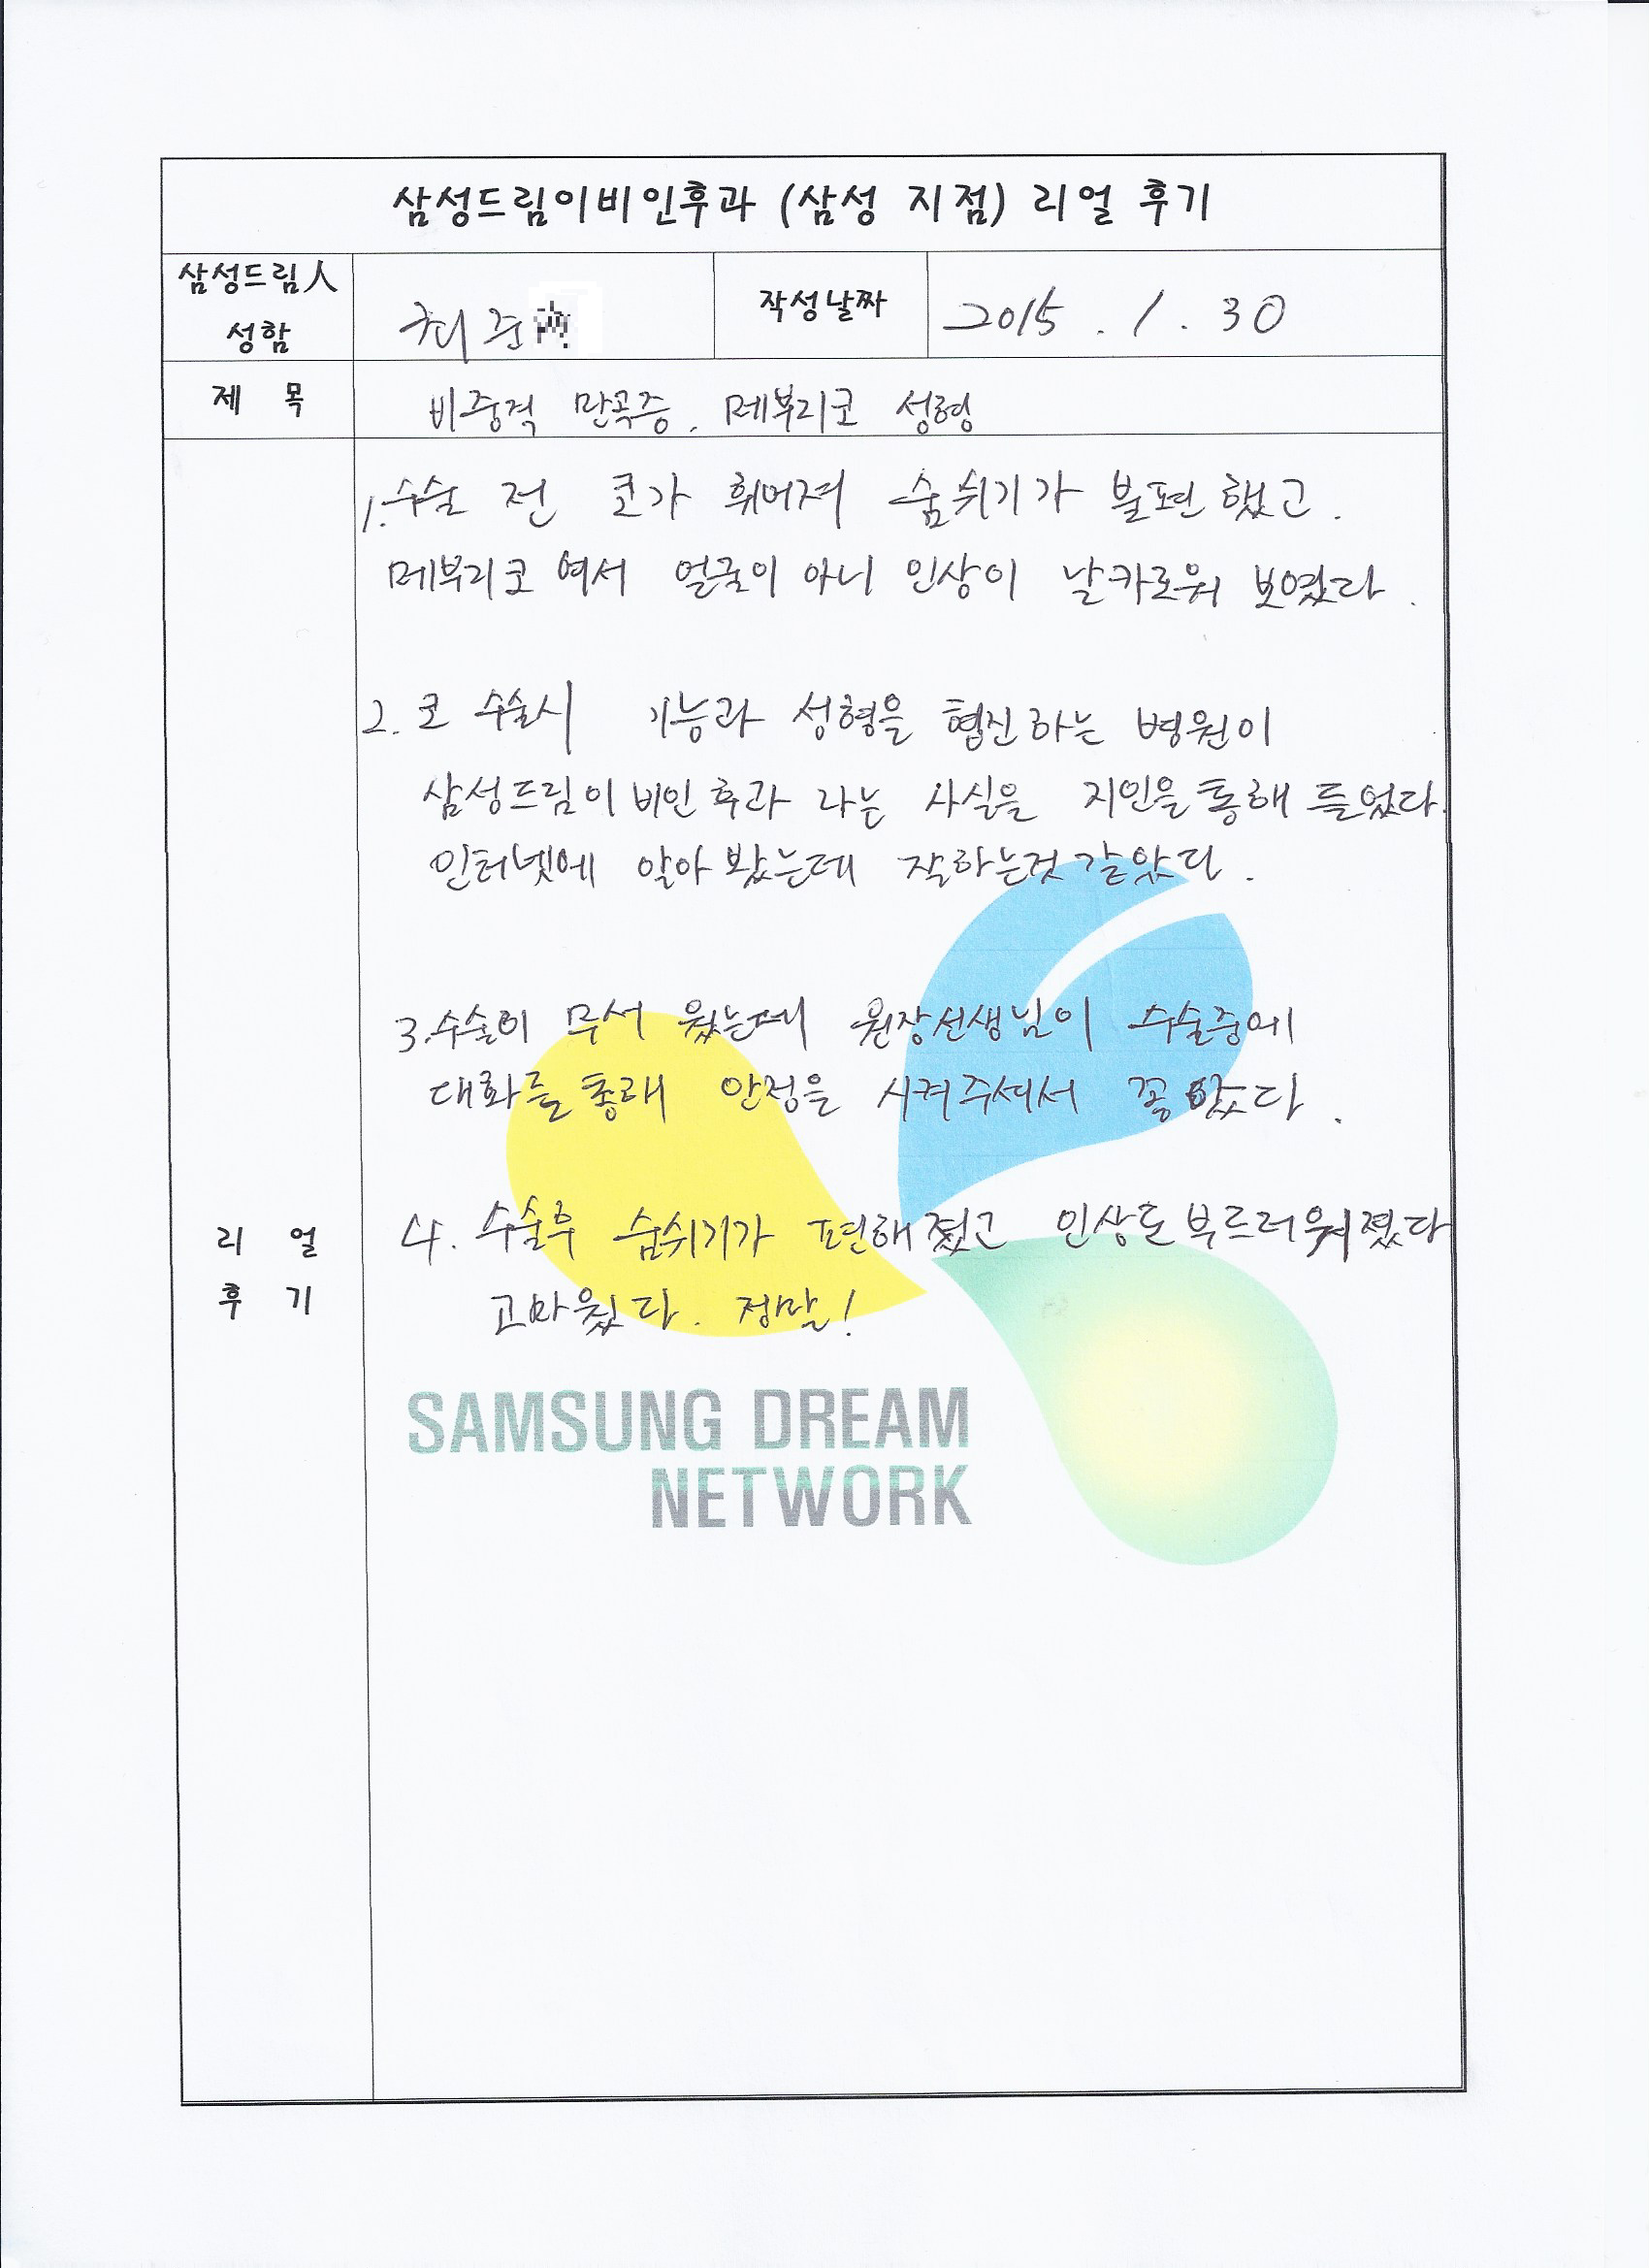 삼성드림이비인후과 (삼성 지점) 리얼 후기
삼성드림人 성함
최준
작성날짜
2015. 1. 30
제 목
비중격 만곡증. 메부리코 성형
리 얼
후 기
1. 수술 전 코가 휘어져 숨쉬기가 불편했고.
메부리코 여서 얼굴이 아니 인상이 날카로워 보였다.
2. 코 수술시 기능과 성형을 협진하는 병원이
삼성드림이비인후과 라는 사실을 지인을 통해 들었다.
인터넷에 알아 봤는데 잘하는것 같았다.
3. 수술이 무서 웠는데 원장선생님이 수술중에
대화를 통해 안정을 시켜주셔서 좋았다.
4. 수술후 숨쉬기가 편해졌고 인상도 부드러워졌다
고마웠다. 정말!
SAMSUNG DREAM
NETWORK